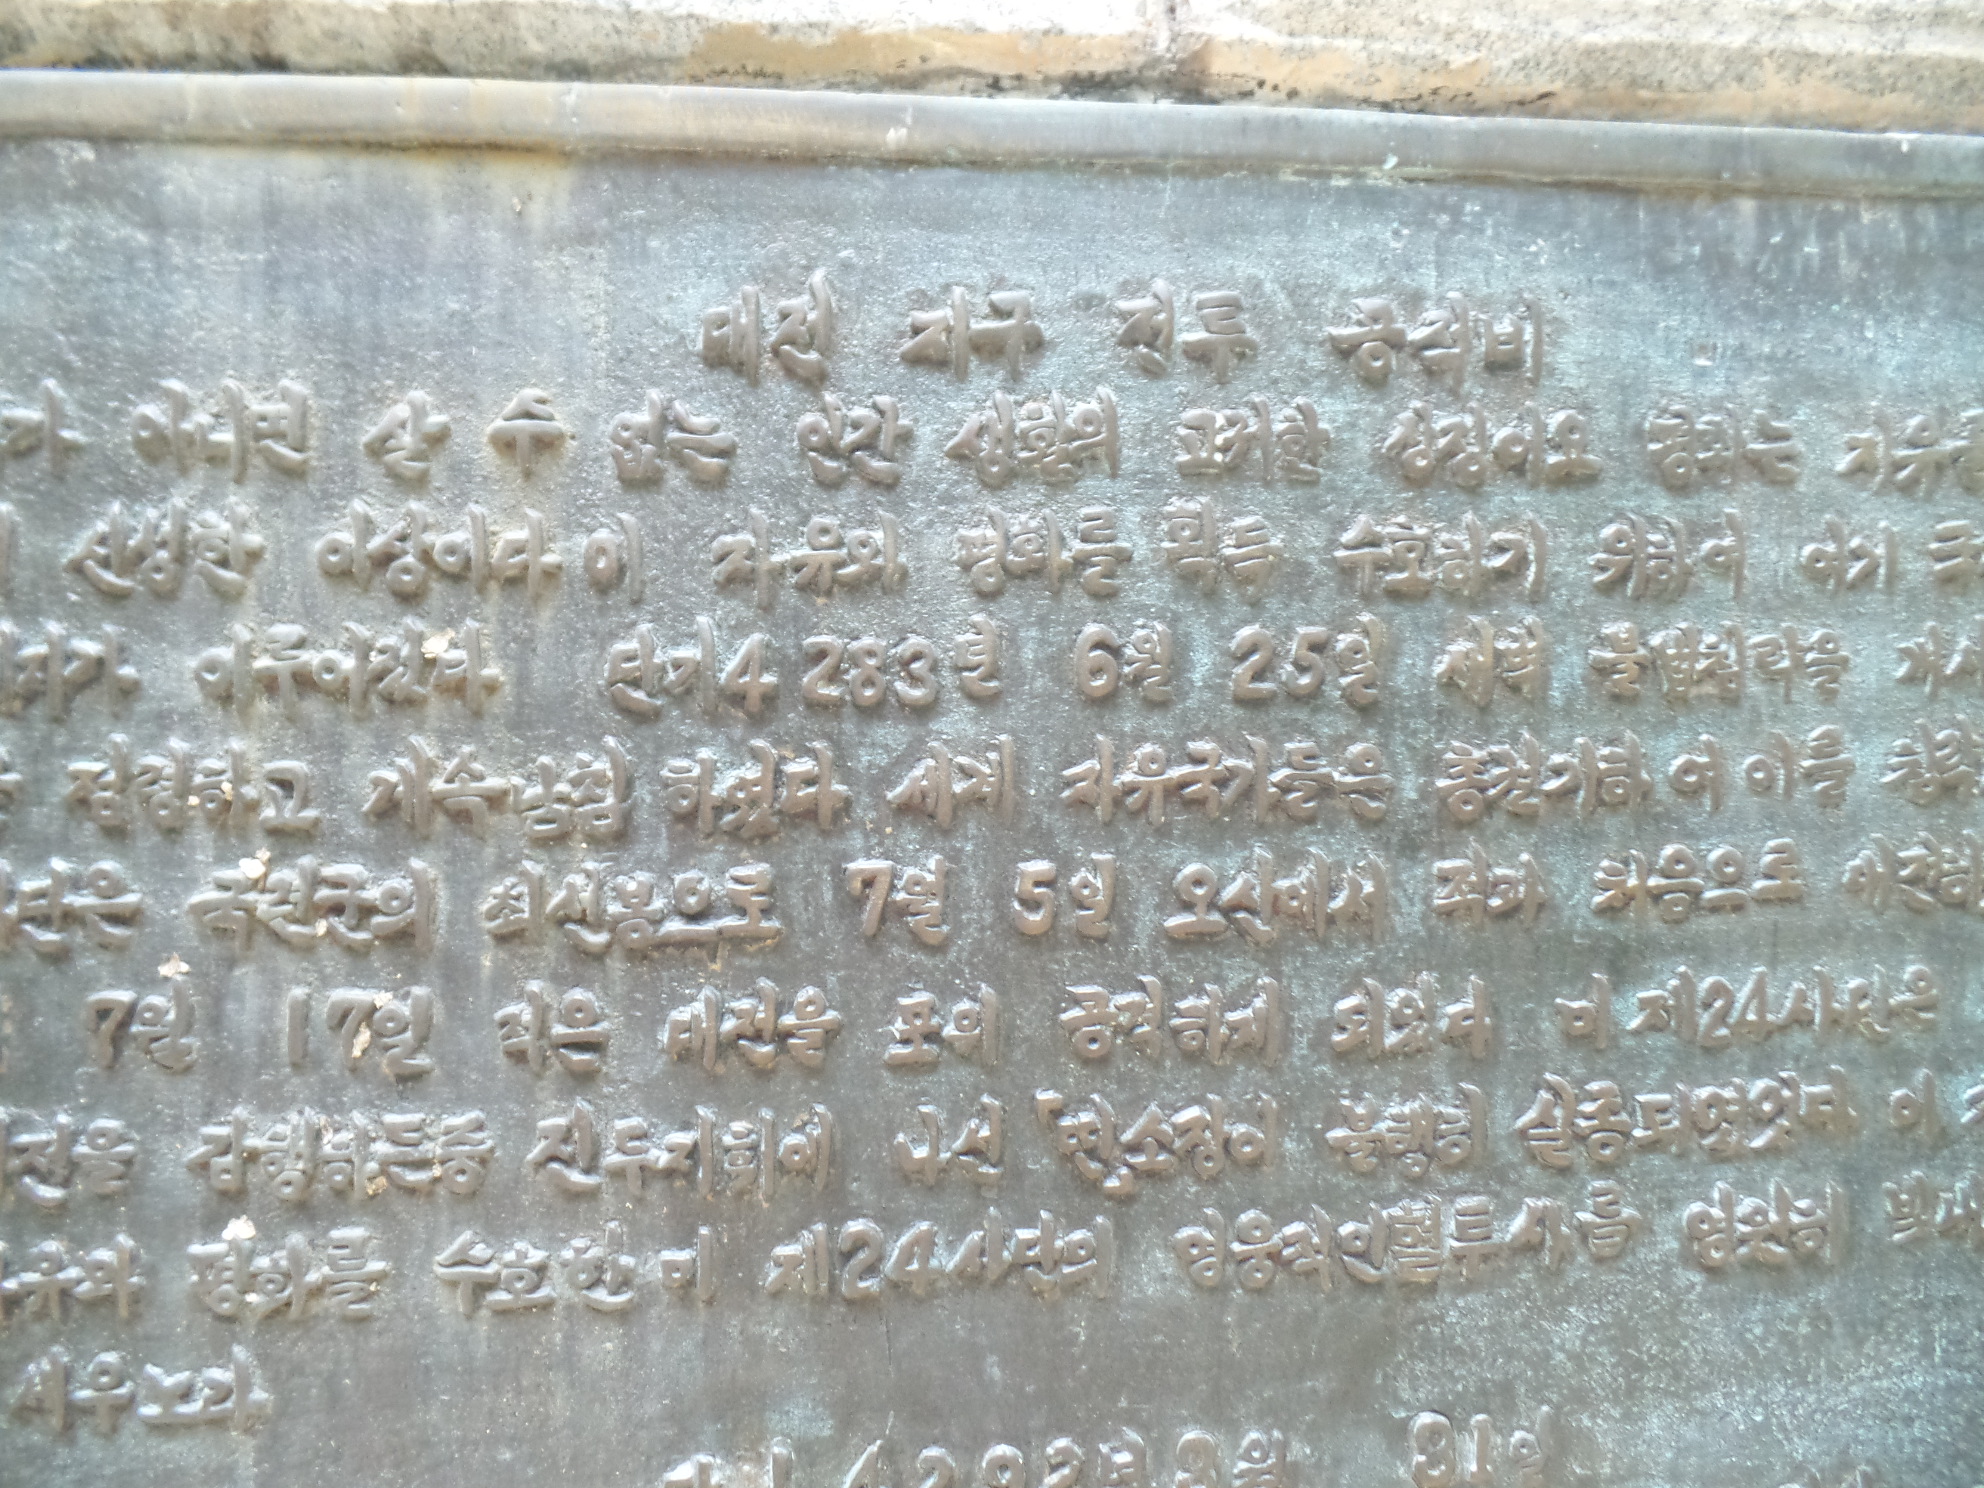 대전 지구 전투 공적비
가 없으면 살 수 없는 인간 생활의 고귀한 상징이요 평화는 자유를
신성한 이상이다 이 자유와 평화를 획득 수호하기 위하여 여기
지가 이루어졌다 단기4283년 6월 25일 새벽 불법침략을
점령하고 계속남침 하였다 세계 자유국가들은 총궐기하여 이를
단은 국련군의 최선봉으로 7월 5일 오산에서 적과 처음으로
7월 17일 적은 대전을 포위 공격하게 되었다 미 제24사단은
전을 감행하든중 진두지휘에 나선 띤소장이 불행히 실종되였었다 이
유와 평화를 수호한 미 제24사단의 영웅적인혈투사를 영원히 빛내
세우노라
4292년3월 31일